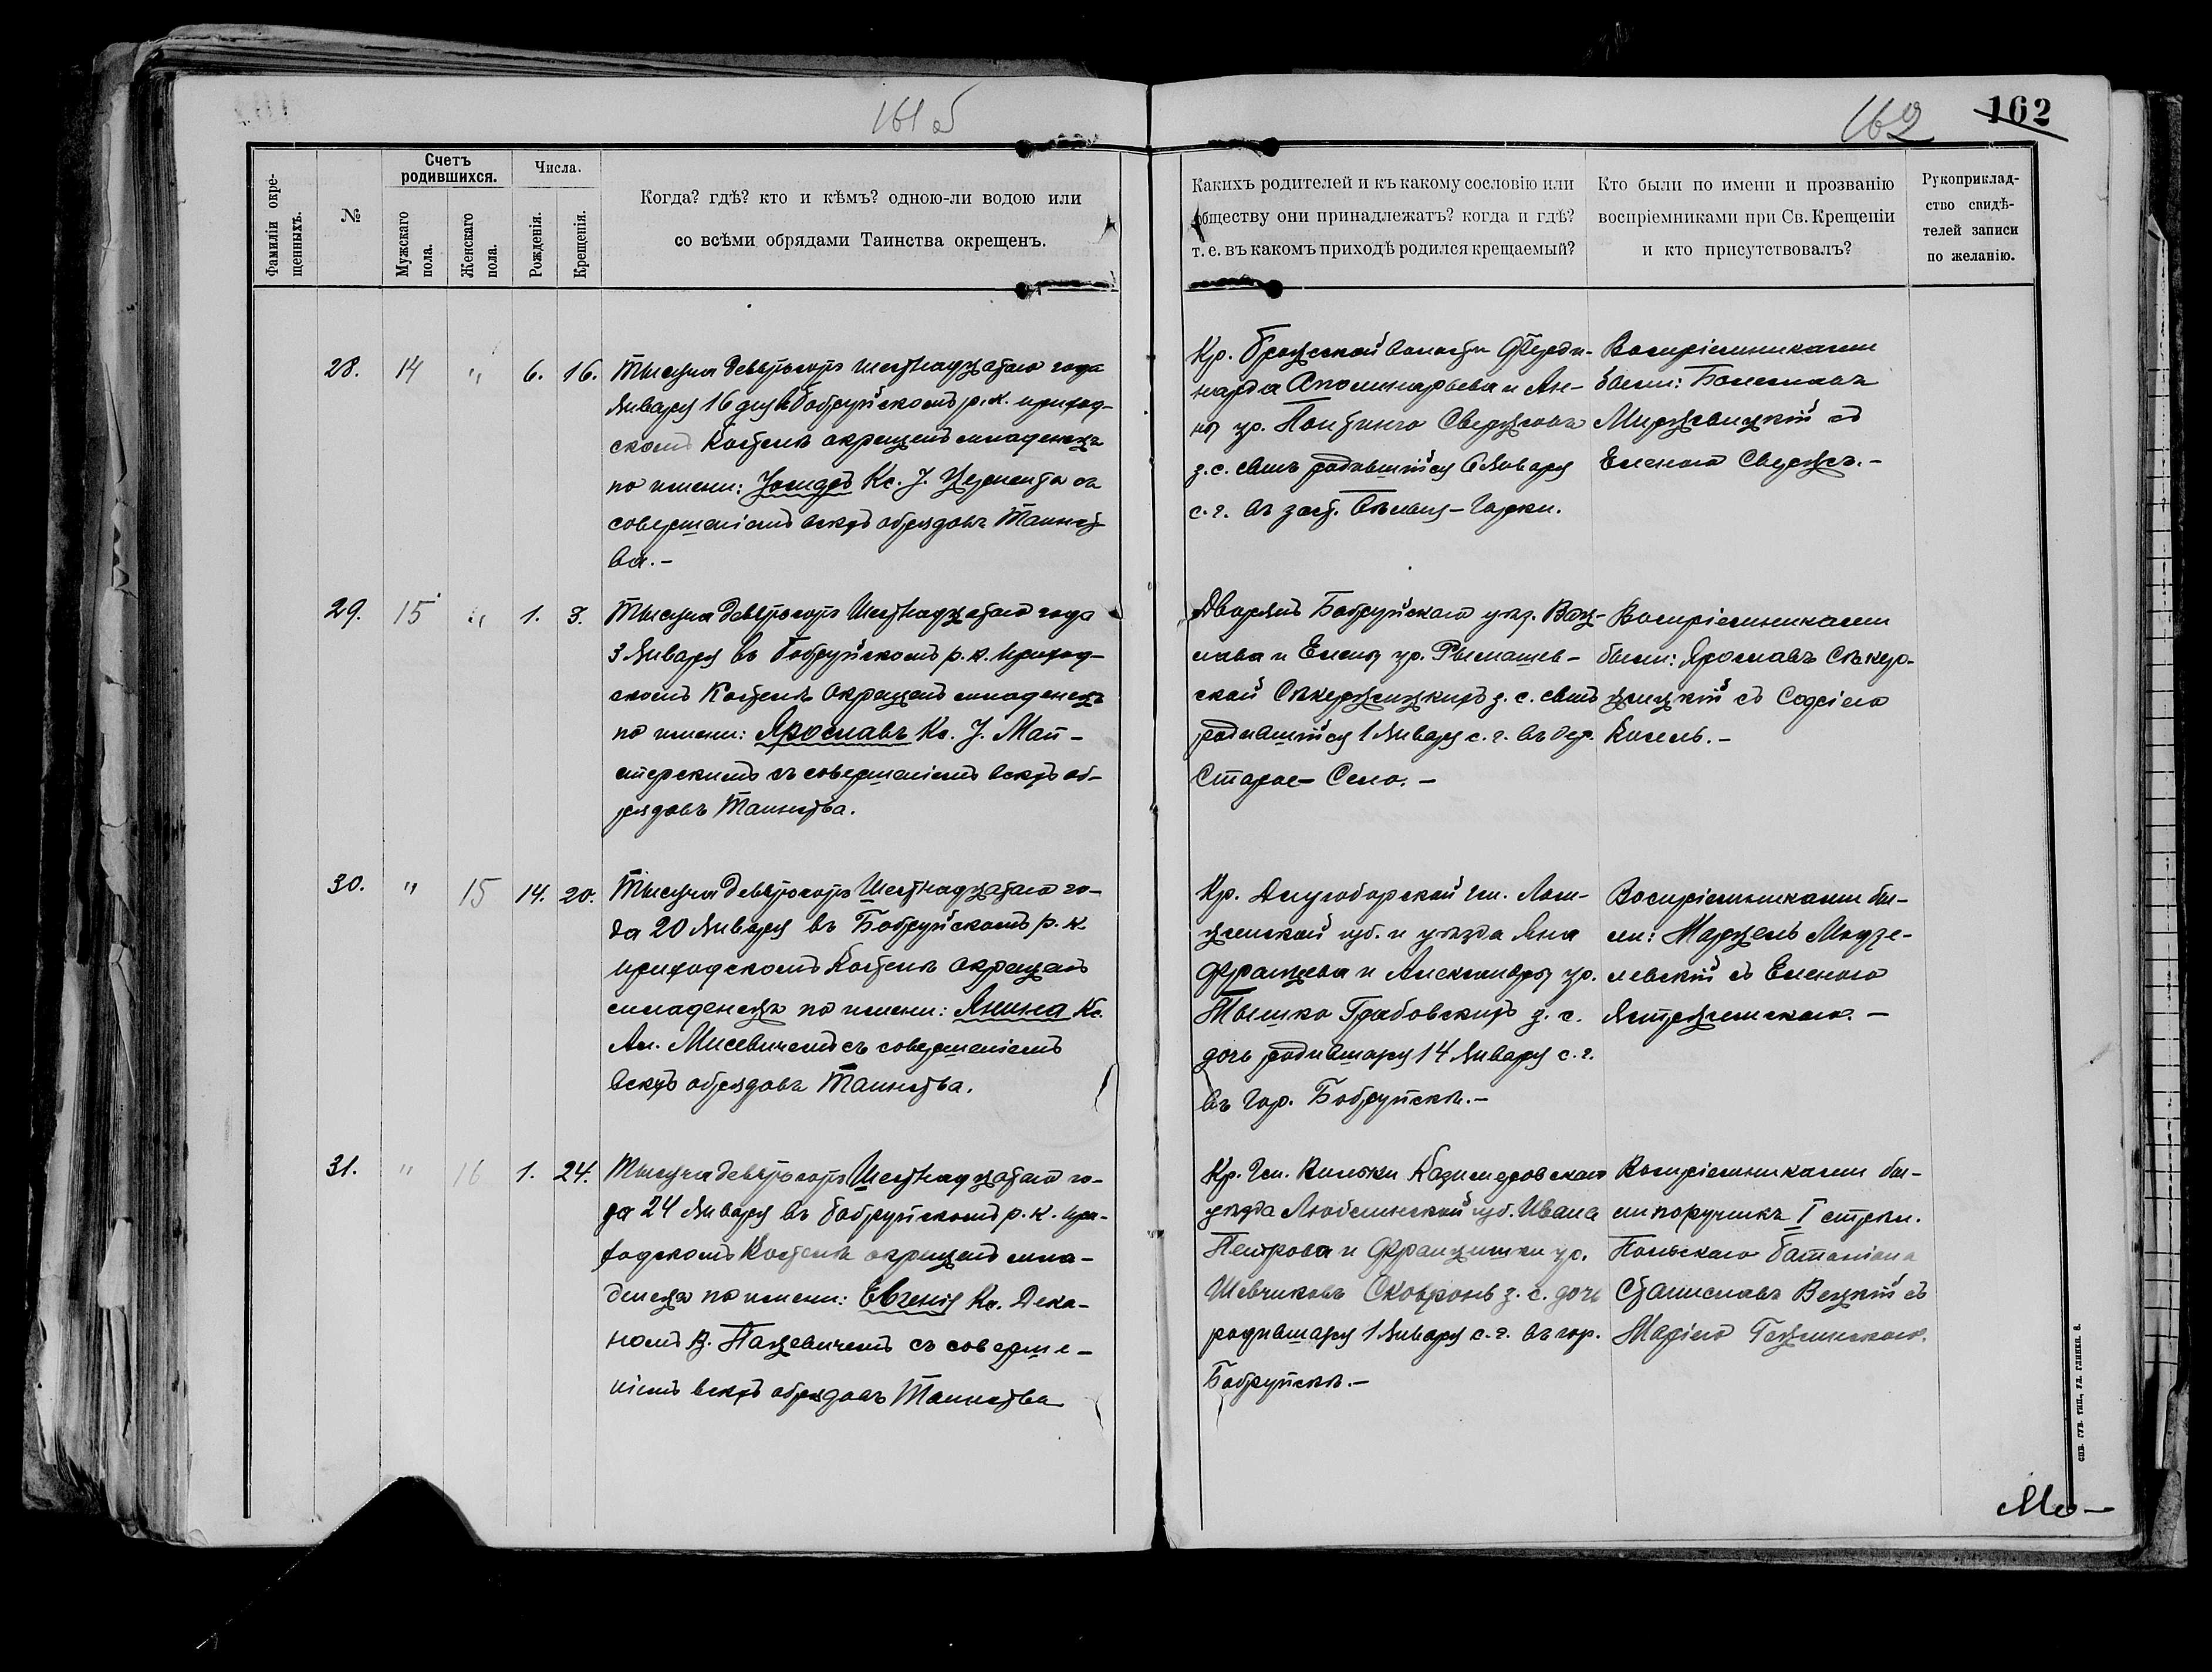 161 б
162
162
Фамиліи окре-
щенныхъ.
№
Счетъ
родившихся.
Мужскаго
пола.
Женскаго
пола.
Числа.
Рожденія.
Крещенія.
Когда? гдѣ? кто и кѣмъ? одною-ли водою или
со всѣми обрядами Таинства окрещенъ.
Какихъ родителей и къ какому сословію или
обществу они принадлежатъ? когда и гдѣ?
т. е. въ какомъ приходѣ родился крещаемый?
Кто были по имени и прозванію
воспріемниками при Св. Крещеніи
и кто присутствовалъ?
Рукоприклад-
ство свидѣ-
телей записи
по желанію.
28. 14 " 6. 16.
Тысяча девятьсотъ шестнадцатаго года
Января 16 дня въ Бобруйскомъ р. к. приход-
скомъ Костелѣ окрещенъ младенецъ
по имени: Кс. І.
совершеніемъ всѣхъ обрядовъ Таинст-
ва.-
Кр. Брожской волости Ферди-
нарда Аполинарьева и Ан-
ны ур.
з. с. сынъ родившійся 6 Января
с. г. въ заст. Горки.
Воспріемниками
были: Болеславъ
съ
Еленою
29. 15 " 1. 3.
Тысяча девятьсотъ Шестнадцатаго года
3 Января въ Бобруйскомъ р. к. приход-
скомъ Костелѣ окрещенъ младенецъ
по имени: Ярославъ Кс. І. Май-
стерскимъ съ совершеніемъ всѣхъ об-
рядовъ Таинства.
Дворянъ Бобруйскаго уѣз. Вац-
лава и Елены ур. Рымашев-
ской з. с. сынъ
родившійся 1 Января с. г. въ дер.
Старое-Село.-
Воспріемниками
были: Ярославъ Сѣкер-
жицкій съ Софіею
Козелъ.-
30. " 15 14. 20.
Тысяча девятьсотъ Шестнадцатаго го-
да 20 Января въ Бобруйскомъ р. к.
приходскомъ Костелѣ окрещенъ
младенецъ по имени: Янина Кс.
Ал. Мисевичемъ съ совершеніемъ
всѣхъ обрядовъ Таинства.
Кр. Длугоборской гм. Лом-
жинской губ. и уѣзда Яна
Францева и Александры ур.
Тышко Грабовскихъ з. с.
дочь родившаяся 14 Января с. г.
въ гор. Бобруйскѣ.-
Воспріемниками бы-
ли:
левскій съ Еленою
Ястржемскою.-
31. " 16 1. 24.
Тысяча девятьсотъ Шестнадцатаго го-
да 24 Января въ Бобруйскомъ р. к. при-
ходскомъ Костелѣ окрещенъ мла-
денецъ по имени: Евгенія Кс. Дека-
номъ В. Пацевичемъ съ соверше-
ніемъ всѣхъ обрядовъ Таинства
Кр. Гм. Вильки Казимеровскаго
уѣзда Люблинской губ. Ивана
Петрова и Францишки ур.
Шевчиковъ Сковронъ з. с. дочь
родившаяся 1 Января с. г. въ гор.
Бобруйскѣ.-
Воспріемниками бы-
ли поручикъ I стрѣл.
Польскаго баталіона
Станиславъ Вецкій съ
Маріею
СПБ. ГУБ. ТИП., УЛ. ГЛИНКИ, 8.